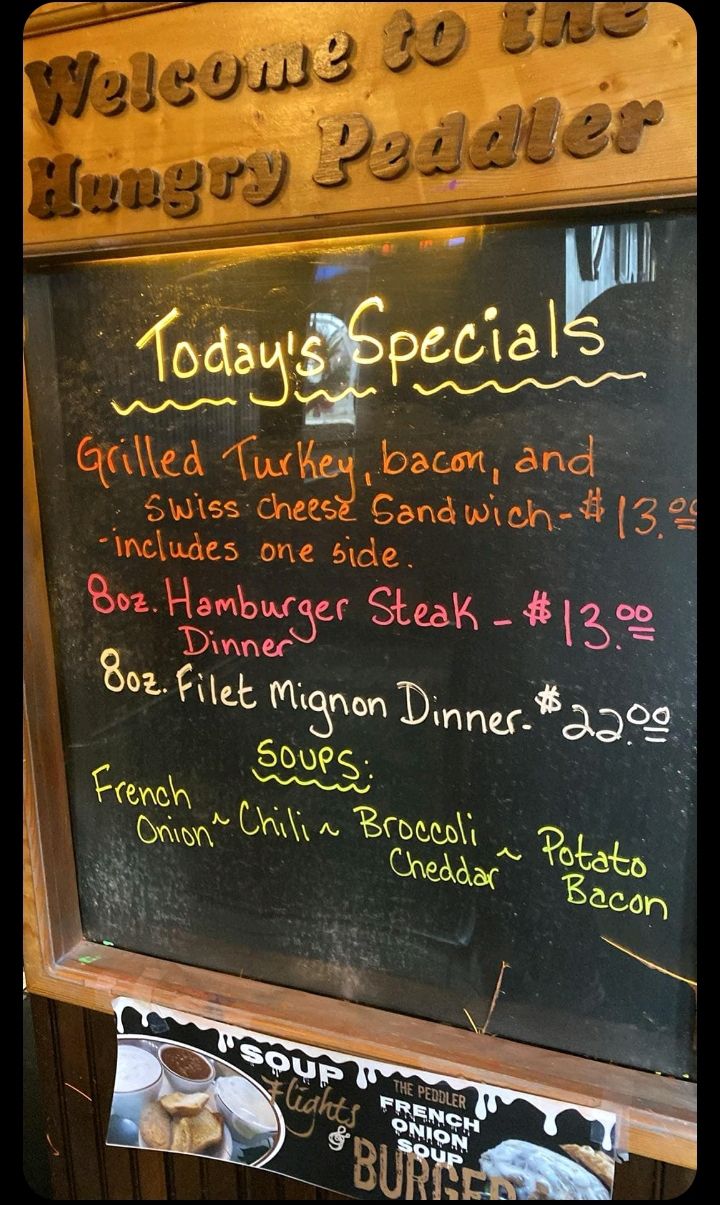 Welcome to the
Hungry Peddler
Today's Specials
Grilled Turkey, bacon, and
Swiss cheese Sandwich - $13.00
- includes one side.
8oz. Hamburger Steak - $13.00
Dinner
8oz. Filet Mignon Dinner - $22.00
SOUPS:
French Onion ~ Chili ~ Broccoli Cheddar ~ Potato Bacon
SOUP
Flights
&
THE PEDDLER
FRENCH
ONION
SOUP
BURGER